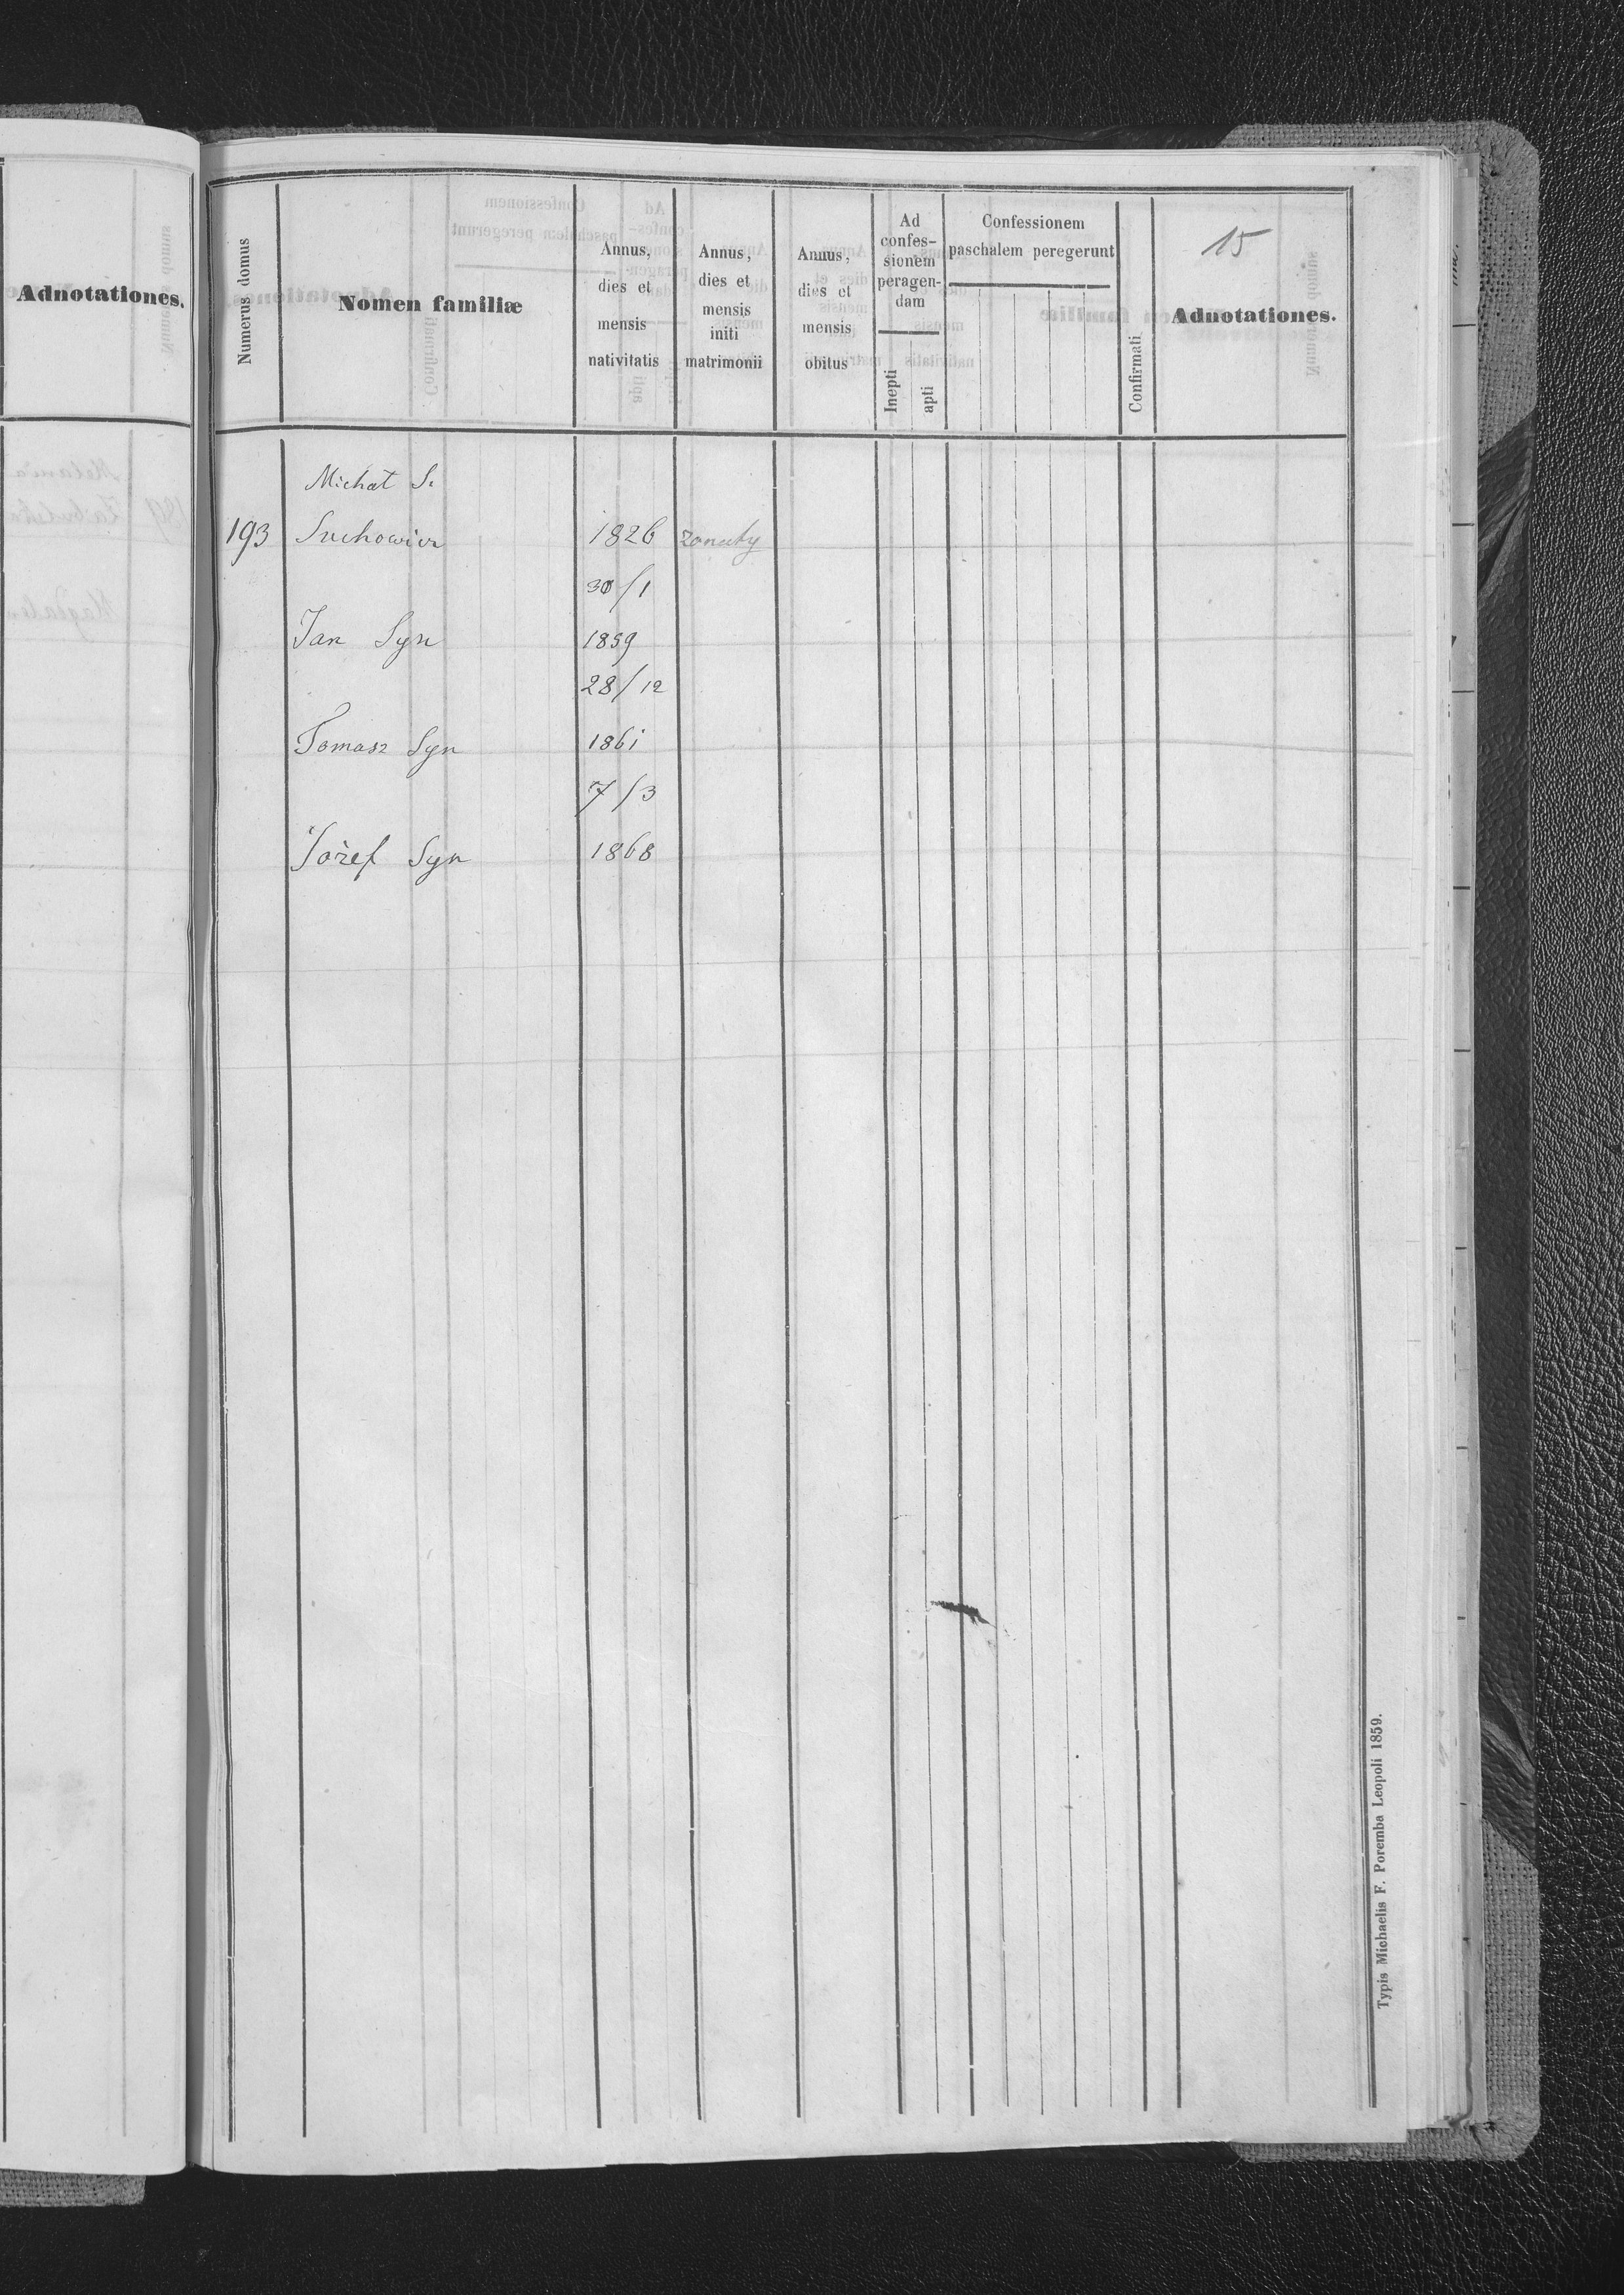 Adnotationes.
Numerus domus
Nomen familiæ
Annus,
dies et
mensis
nativitatis
Annus,
dies et
mensis
initi
matrimonii
Annus,
dies et
mensis
obitus
Ad
confes-
sionem
peragen-
dam
Inepti
apti
Confessionem
paschalem peregerunt
Confirmati
15
Adnotationes.
Michał S.
193 Suchowicz 1826 żonaty
30/1
Jan Syn 1859
28/12
Tomasz Syn 1861
7/3
Józef Syn 1868
Typis Michaelis F. Poremba Leopoli 1859.